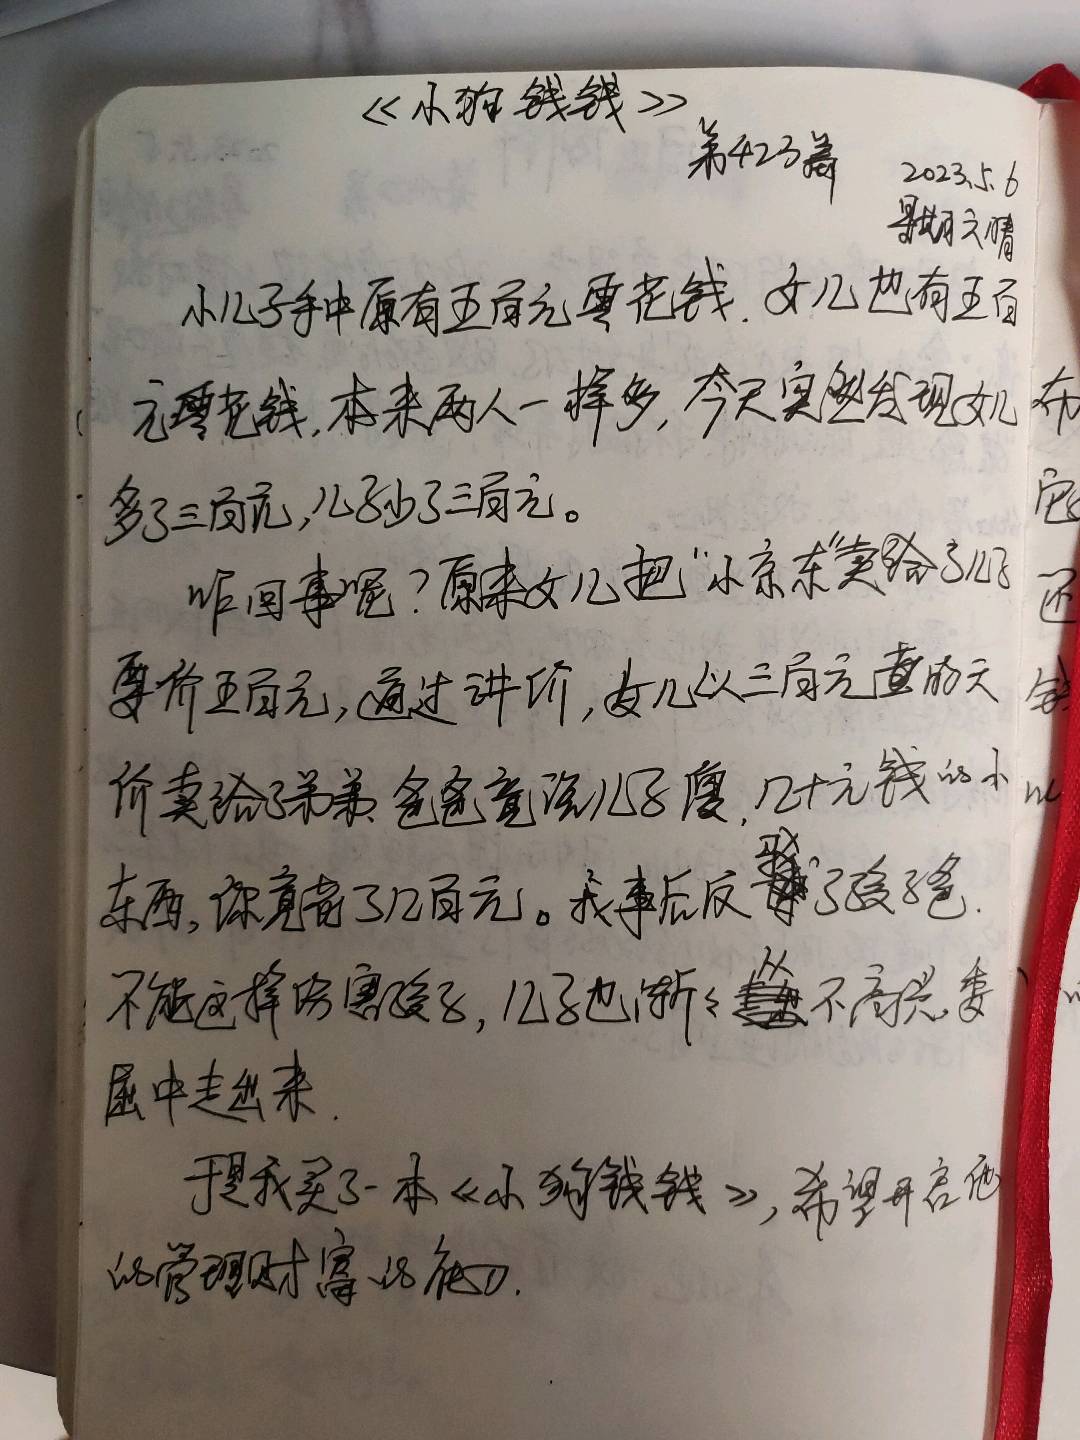 《小狗钱钱》
第423篇
2023.5.6
星期六晴
小儿子手中原有五百元零花钱.女儿也有五百
元零花钱,本来两人一样多,今天突然发现女儿
多了三百元,儿子少了三百元。
咋回事呢?原来女儿把"小京东"卖给了儿子
要价五百元,通过讲价,女儿以三百元 的天
价卖给了弟弟.爸爸竟说儿子傻,几十元钱的小
东西,你竟 了几百元。我事后反驳了孩子爸.
不能这样伤害孩子,儿子也渐渐从不高兴.委
屈中走出来.
于是我买了一本《小狗钱钱》,希望开启他
的管理财富的能力.